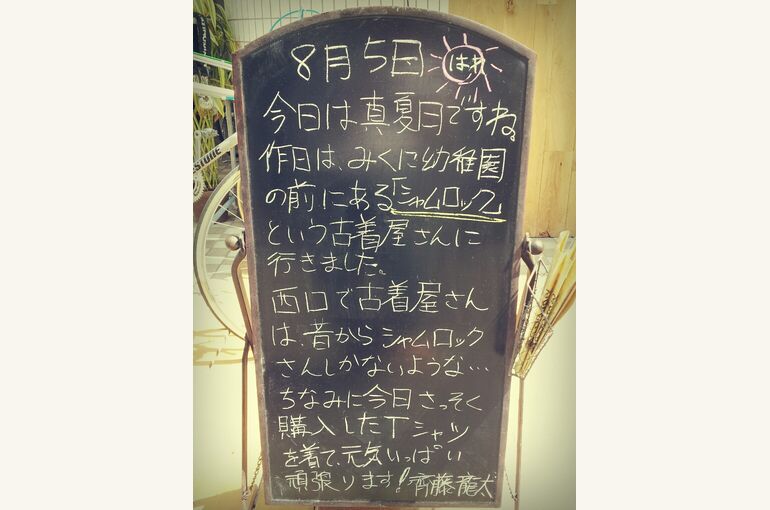 8月5日 はれ
今日は真夏日ですね。
昨日は、みくに幼稚園
の前にある「シャムロック」
という古着屋さんに
行きました。
西口で古着屋さん
は、昔からシャムロック
さんしかないような…
ちなみに今日さっそく
購入したTシャツ
を着て、元気いっぱい
頑張ります!齊藤龍太